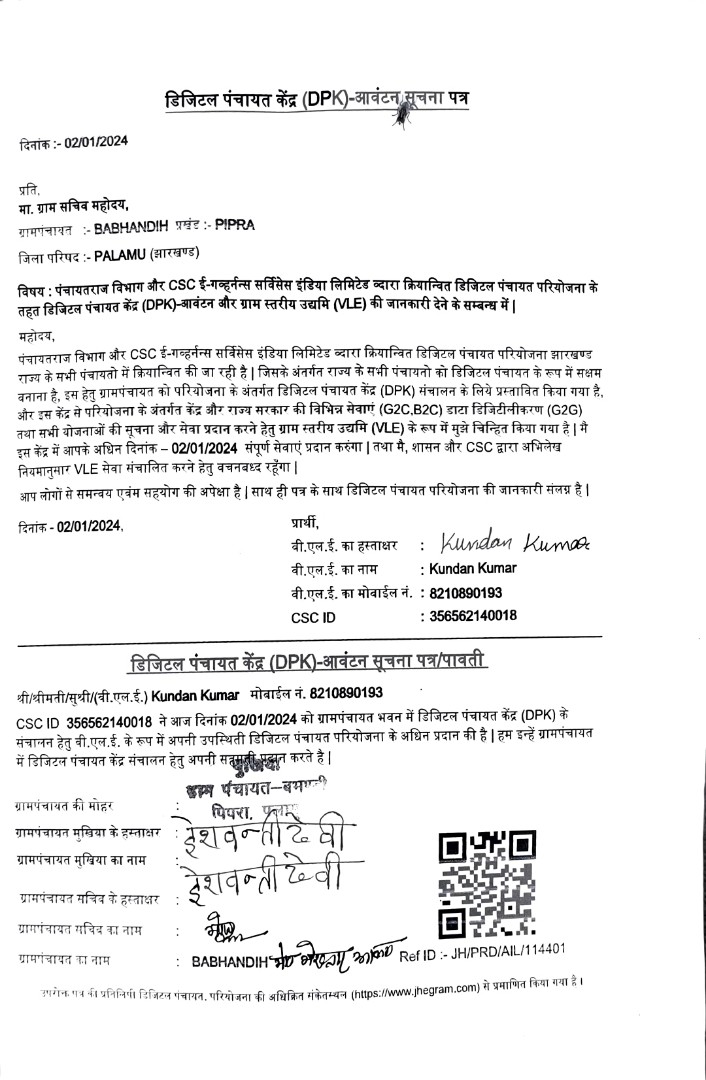 डिजिटल पंचायत केंद्र (DPK)-आवंटन सूचना पत्र
दिनांक :- 02/01/2024
प्रति,
मा. ग्राम सचिव महोदय,
ग्रामपंचायत :- BABHANDIH प्रखंड :- PIPRA
जिला परिषद :- PALAMU (झारखण्ड)
विषय : पंचायतराज विभाग और CSC ई-गव्हर्नन्स सर्विसेस इंडिया लिमिटेड व्दारा क्रियान्वित डिजिटल पंचायत परियोजना के
तहत डिजिटल पंचायत केंद्र (DPK)-आवंटन और ग्राम स्तरीय उद्यमि (VLE) की जानकारी देने के सम्बन्ध में |
महोदय,
पंचायतराज विभाग और CSC ई-गव्हर्नन्स सर्विसेस इंडिया लिमिटेड व्दारा क्रियान्वित डिजिटल पंचायत परियोजना झारखण्ड
राज्य के सभी पंचायतो में क्रियान्वित की जा रही है | जिसके अंतर्गत राज्य के सभी पंचायतो को डिजिटल पंचायत के रूप में सक्षम
बनाना है, इस हेतु ग्रामपंचायत को परियोजना के अंतर्गत डिजिटल पंचायत केंद्र (DPK) संचालन के लिये प्रस्तावित किया गया है,
और इस केंद्र से परियोजना के अंतर्गत केंद्र और राज्य सरकार की विभिन्न सेवाएं (G2C,B2C) डाटा डिजिटीलीकरण (G2G)
तथा सभी योजनाओं की सूचना और सेवा प्रदान करने हेतु ग्राम स्तरीय उद्यमि (VLE) के रूप में मुझे चिन्हित किया गया है | मै
इस केंद्र में आपके अधिन दिनांक – 02/01/2024 संपूर्ण सेवाएं प्रदान करुंगा | तथा मै, शासन और CSC द्वारा अभिलेख
नियमानुसार VLE सेवा संचालित करने हेतु वचनबध्द रहूँगा |
आप लोगों से समन्वय एवंम सहयोग की अपेक्षा है | साथ ही पत्र के साथ डिजिटल पंचायत परियोजना की जानकारी संलग्न है |
दिनांक - 02/01/2024,
प्रार्थी,
वी.एल.ई. का हस्ताक्षर : Kundan Kumar
वी.एल.ई. का नाम : Kundan Kumar
वी.एल.ई. का मोबाईल नं. : 8210890193
CSC ID : 356562140018
डिजिटल पंचायत केंद्र (DPK)-आवंटन सूचना पत्र/पावती
श्री/श्रीमती/सुश्री/(वी.एल.ई.) Kundan Kumar मोबाईल नं. 8210890193
CSC ID 356562140018 ने आज दिनांक 02/01/2024 को ग्रामपंचायत भवन में डिजिटल पंचायत केंद्र (DPK) के
संचालन हेतु वी.एल.ई. के रूप में अपनी उपस्थिती डिजिटल पंचायत परियोजना के अधिन प्रदान की है | हम इन्हें ग्रामपंचायत
में डिजिटल पंचायत केंद्र संचालन हेतु अपनी सहमती प्रदान करते है |
मुखिया
ग्राम पंचायत-
ग्रामपंचायत की मोहर :
पिपरा, पलामू
ग्रामपंचायत मुखिया के हस्ताक्षर : ईशवन्ती देवी
ग्रामपंचायत मुखिया का नाम : ईशवन्ती देवी
ग्रामपंचायत सचिव के हस्ताक्षर :
ग्रामपंचायत सचिव का नाम :
ग्रामपंचायत का नाम : BABHANDIH
Ref ID :- JH/PRD/AIL/114401
उपरोक्त पत्र की प्रतिलिपी डिजिटल पंचायत, परियोजना की अधिक्रित संकेतस्थल (https://www.jhegram.com) से प्रमाणित किया गया है |